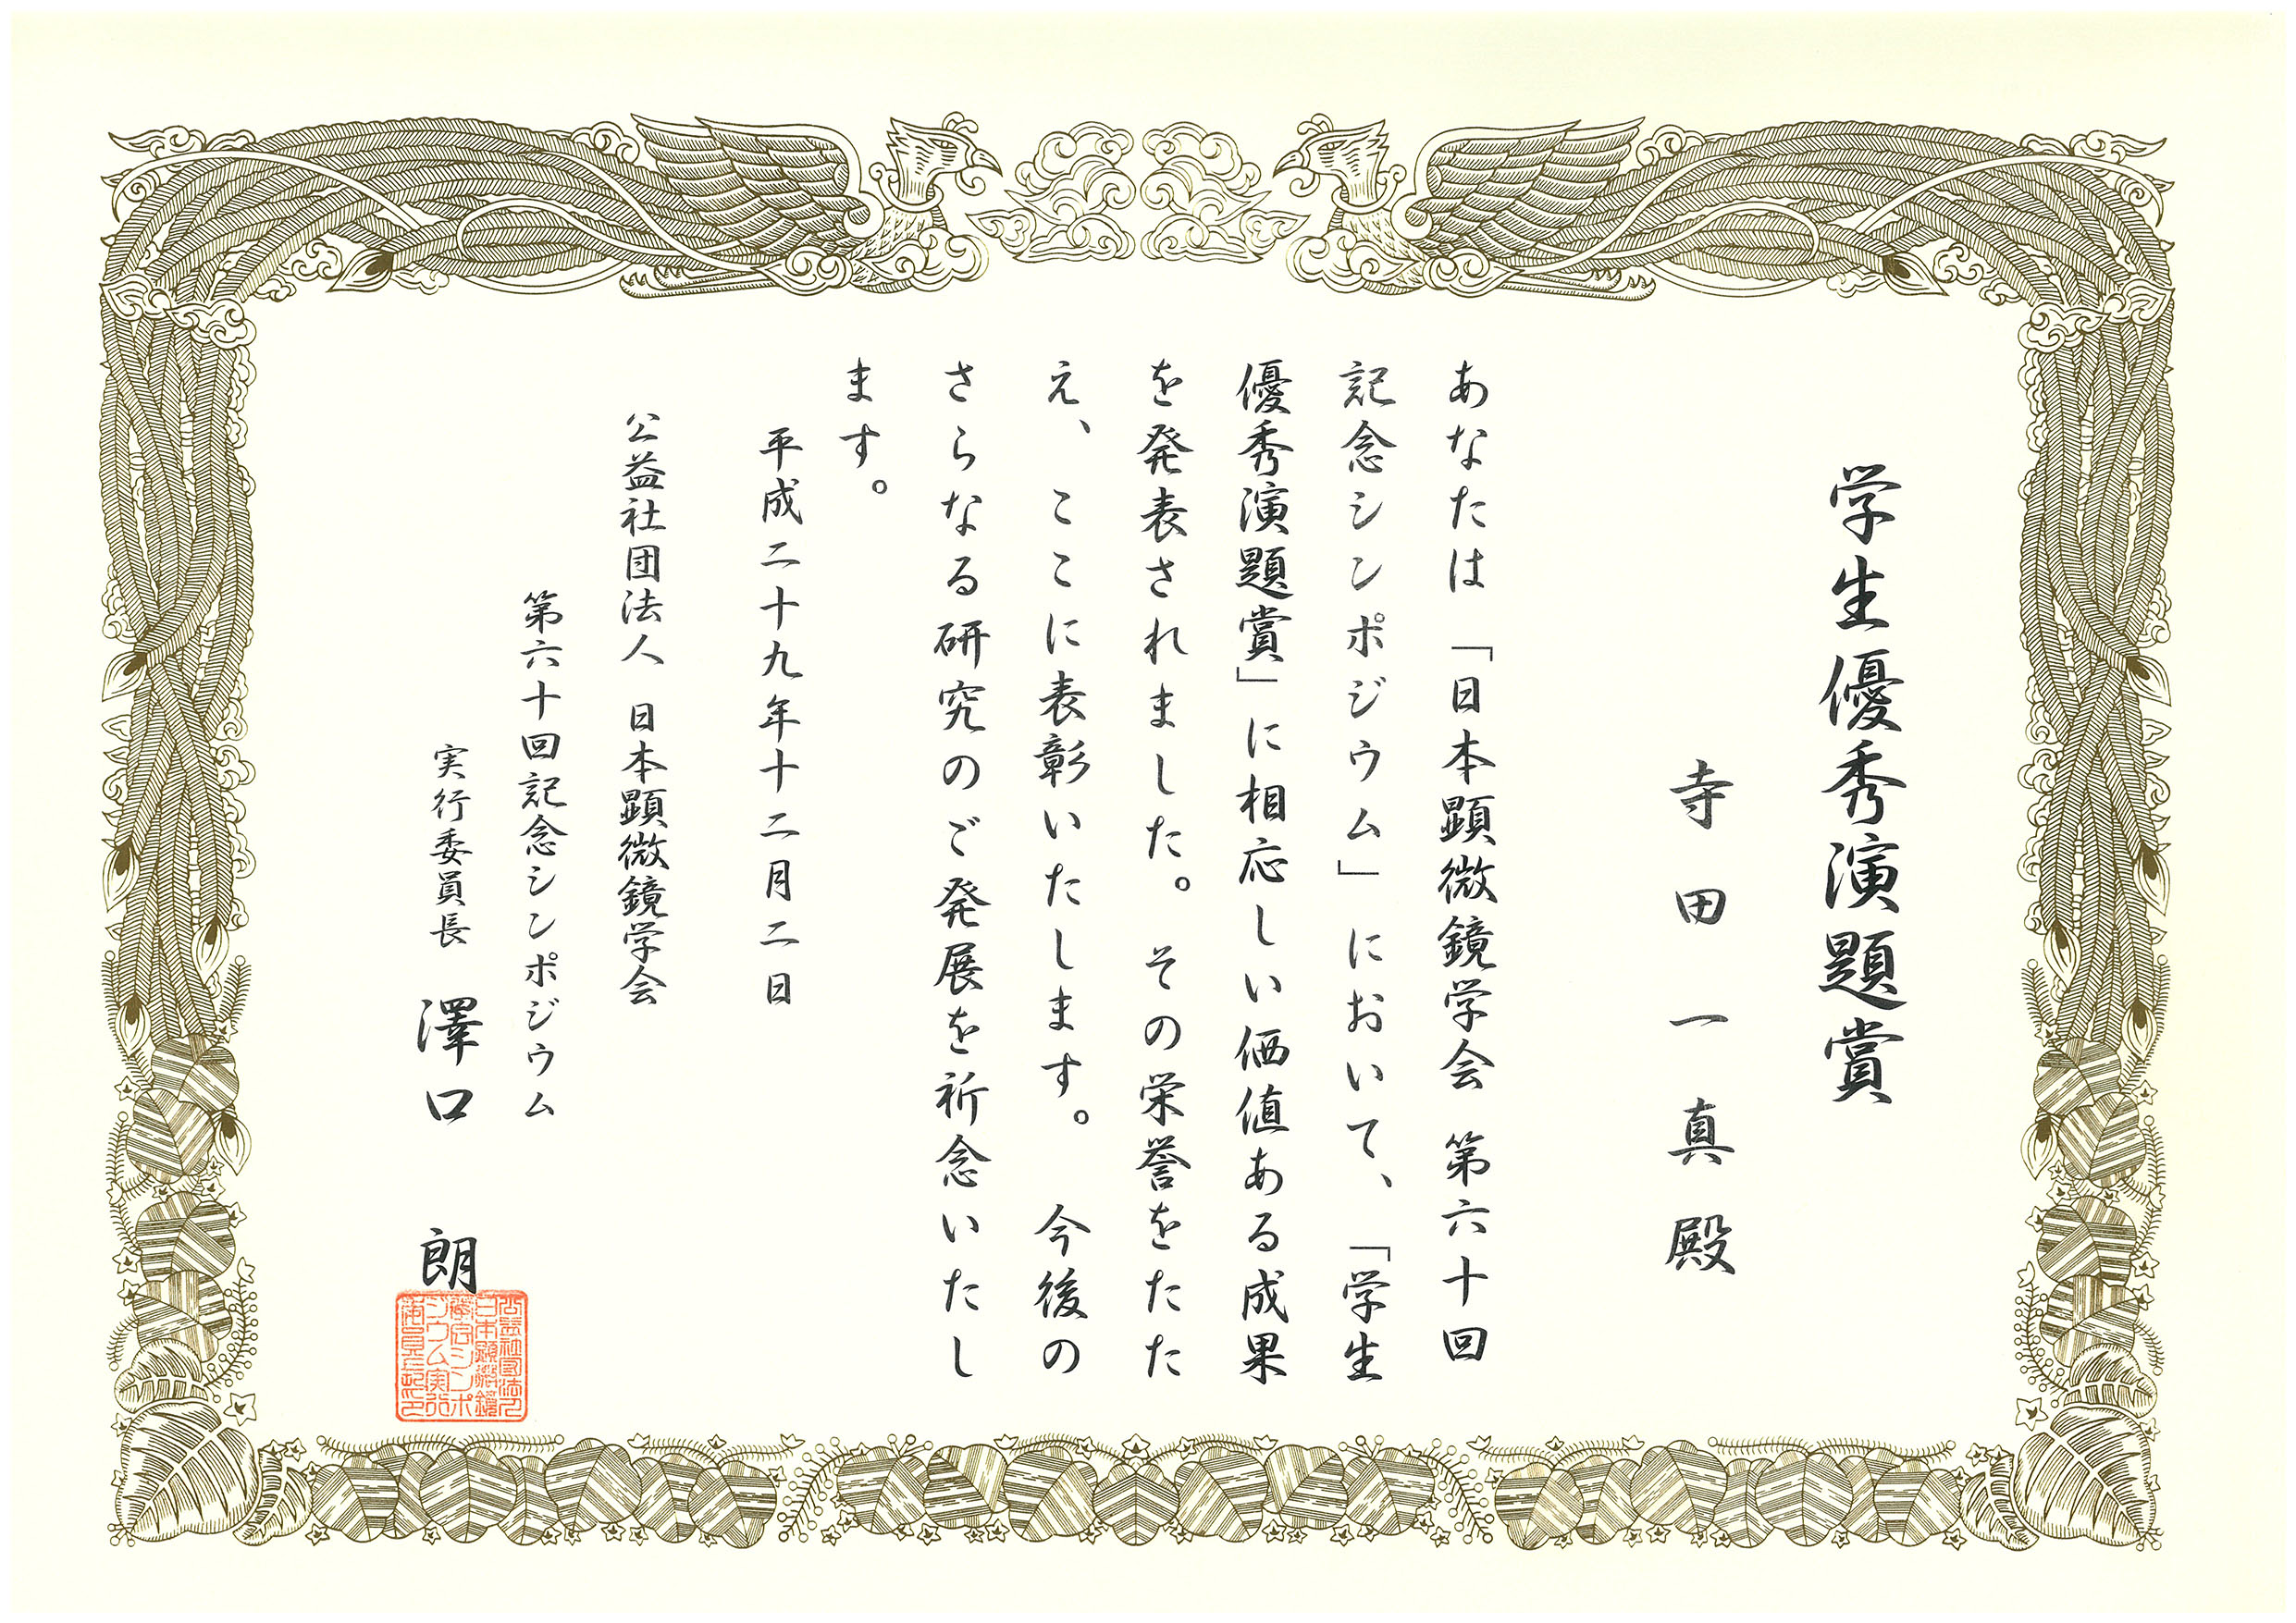 学生優秀演題賞
寺田一真殿
あなたは「日本顕微鏡学会 第六十回
記念シンポジウム」において、「学生
優秀演題賞」に相応しい価値ある成果
を発表されました。その栄誉をたた
え、ここに表彰いたします。 今後の
さらなる研究のご発展を祈念いたし
ます。
平成二十九年十二月二日
公益社団法人 日本顕微鏡学会
第六十回記念シンポジウム
実行委員長 澤口 朗